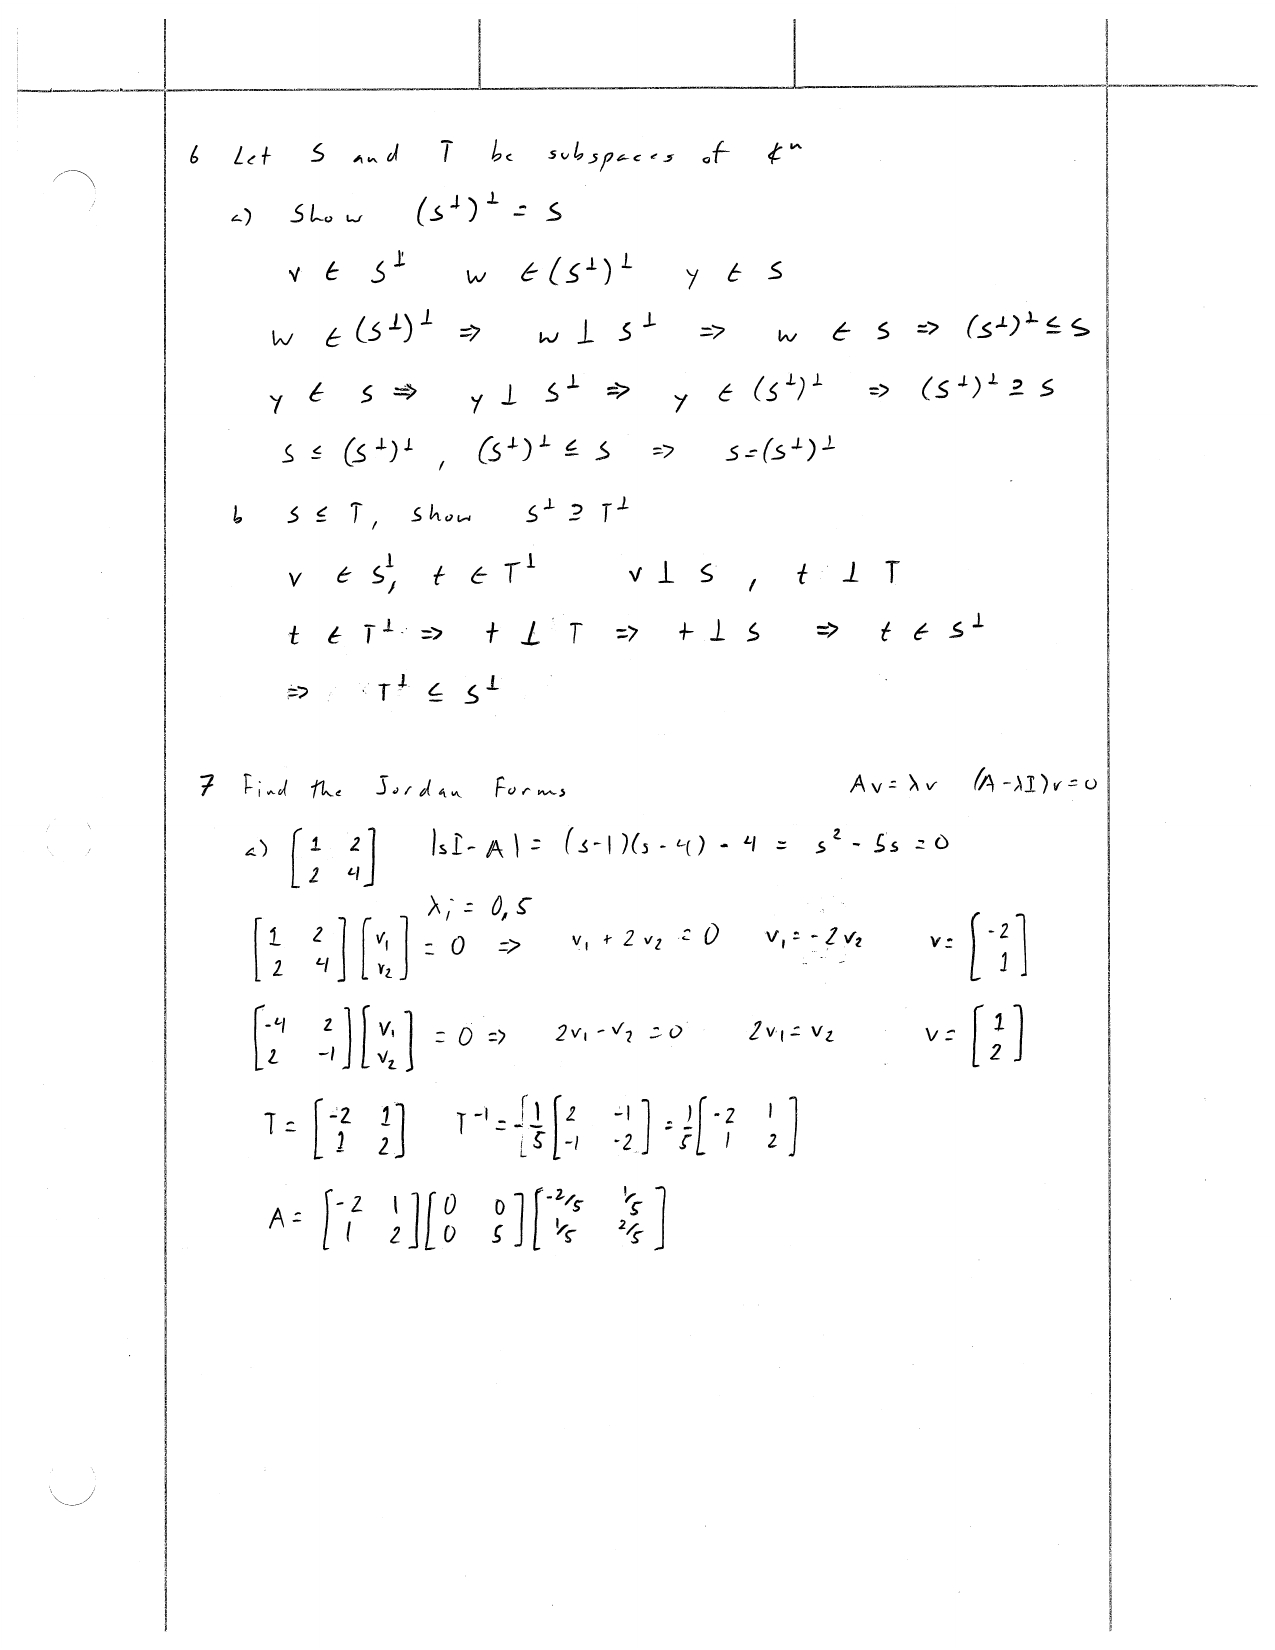 6 Let S and T be subspaces of ¢ⁿ
a) Show (S⊥)⊥ = S
v ∈ S⊥ w ∈ (S⊥)⊥ y ∈ S
w ∈ (S⊥)⊥ ⇒ w ⊥ S⊥ ⇒ w ∈ S ⇒ (S⊥)⊥ ⊆ S
y ∈ S ⇒ y ⊥ S⊥ ⇒ y ∈ (S⊥)⊥ ⇒ (S⊥)⊥ ⊇ S
S ⊆ (S⊥)⊥, (S⊥)⊥ ⊆ S ⇒ S = (S⊥)⊥
b S ⊆ T, show S⊥ ⊇ T⊥
v ∈ S⊥, t ∈ T⊥ v ⊥ S, t ⊥ T
t ∈ T⊥ ⇒ t ⊥ T ⇒ t ⊥ S ⇒ t ∈ S⊥
⇒ T⊥ ⊆ S⊥
7 Find the Jordan Forms Av = λv (A-λI)v = 0
a) [1 2; 2 4] |sI - A| = (s-1)(s-4) - 4 = s² - 5s = 0
λᵢ = 0, 5
[1 2; 2 4][v₁; v₂] = 0 ⇒ v₁ + 2v₂ = 0 v₁ = -2v₂ v = [-2; 1]
[-4 2; 2 -1][v₁; v₂] = 0 ⇒ 2v₁ - v₂ = 0 2v₁ = v₂ v = [1; 2]
T = [-2 1; 1 2] T⁻¹ = -1/5 [2 -1; -1 -2] = 1/5 [-2 1; 1 2]
A = [-2 1; 1 2][0 0; 0 5][-2/5 1/5; 1/5 2/5]